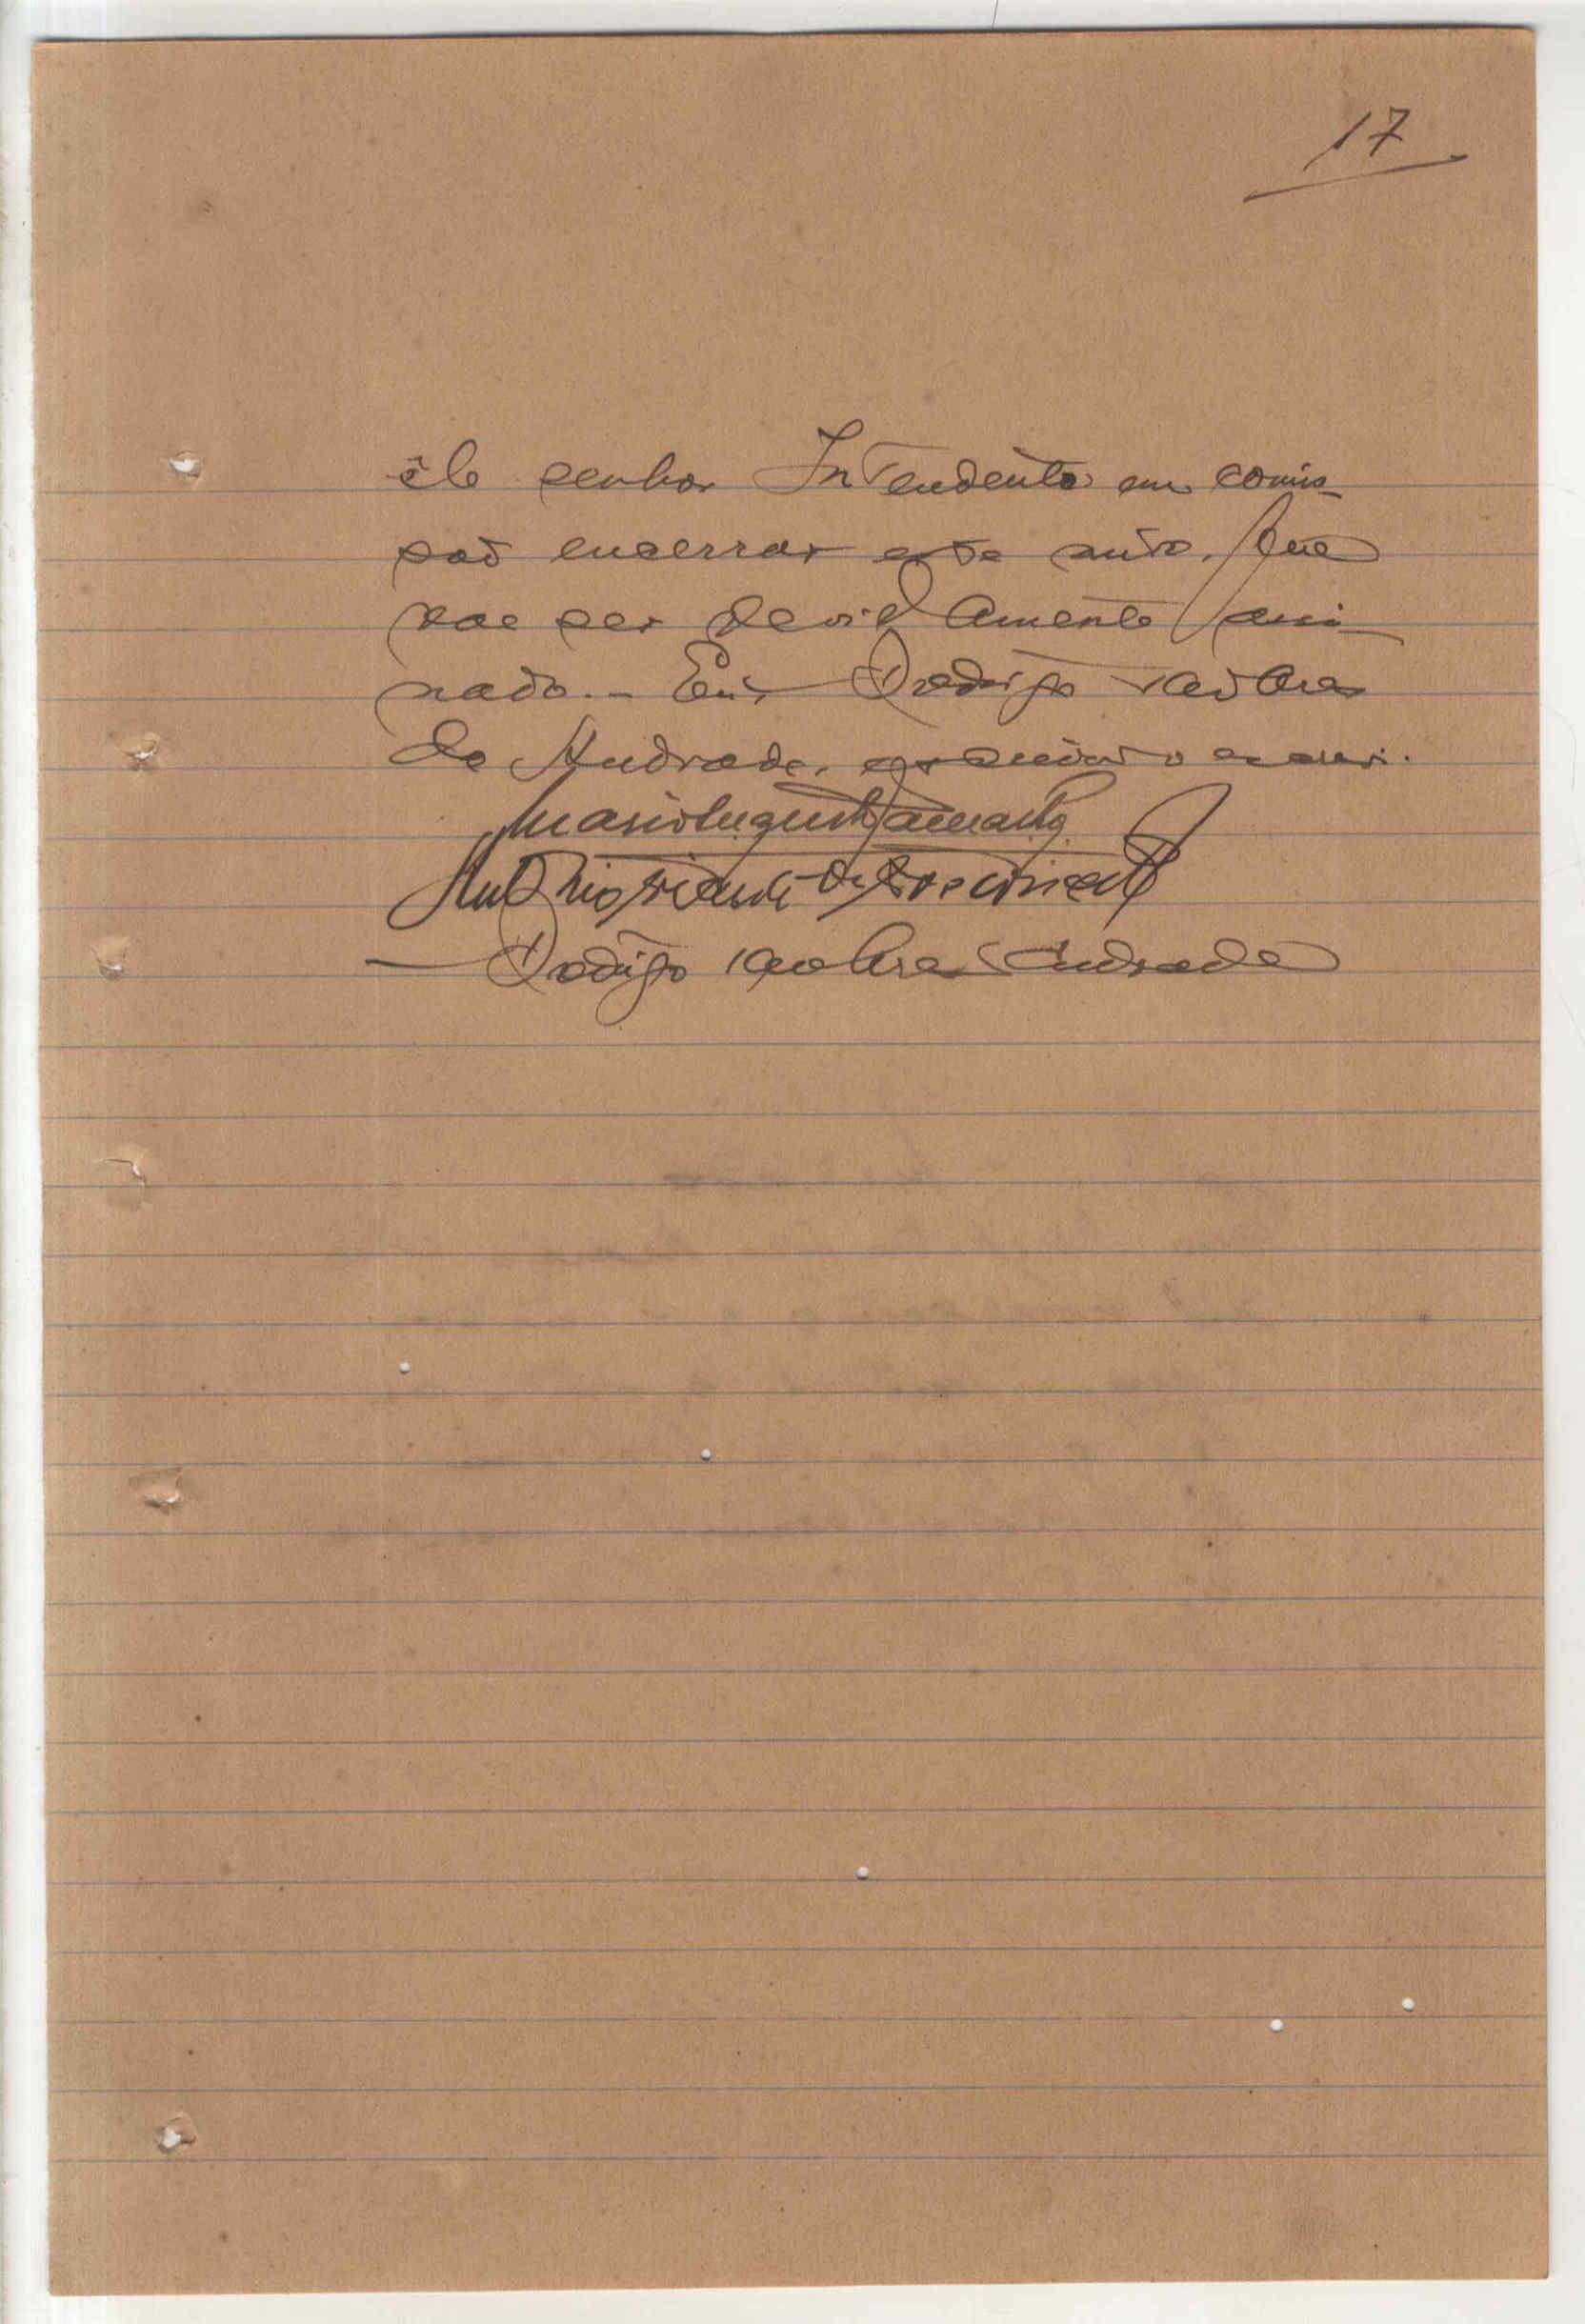 17
êle senhor Intendente em comis-
são encerrar este auto, que
vae ser devidamente assi-
nado.- Eu, Rodrigo Tavares
de Andrade, escrivão o escrevi.
Mario Augusto
Antonio de
Rodrigo Tavares Andrade